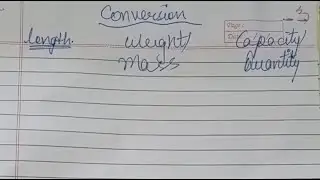 Conversion
Length Weight/ Capacity/
Mass Quantity